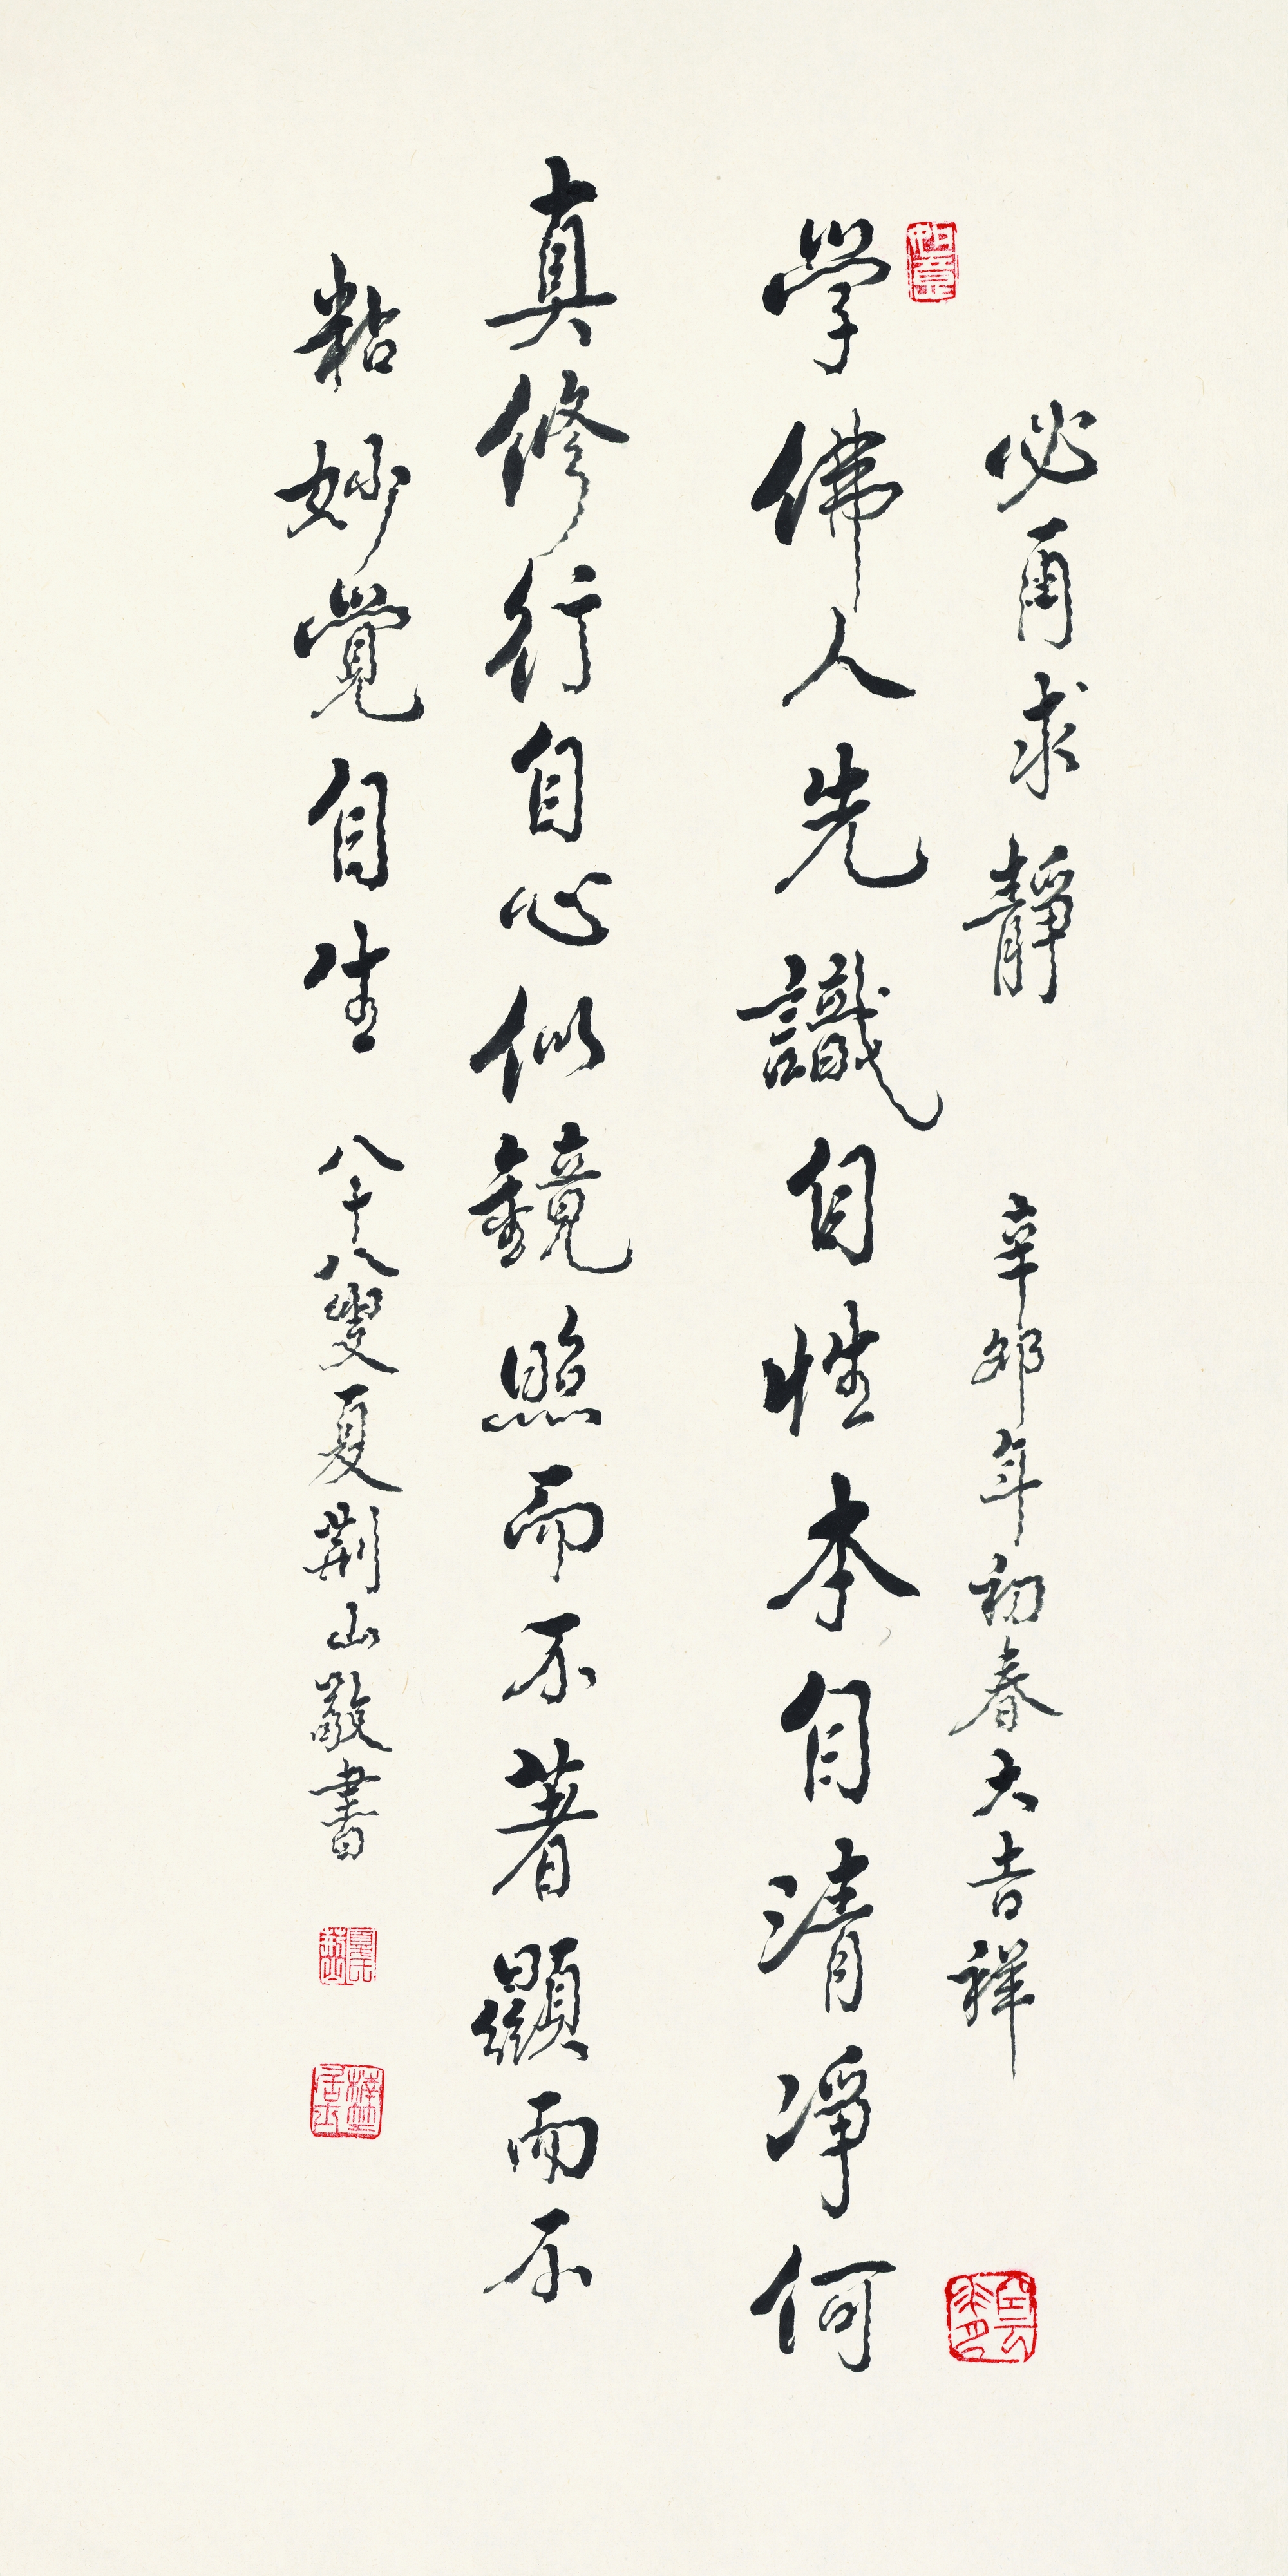 必求靜 辛卯年初春大吉祥
如意
學佛人先識自性本自清淨何
真修行自心似鏡照而不著顯而不
粘妙覺自生 八十八叟夏荊山敬書